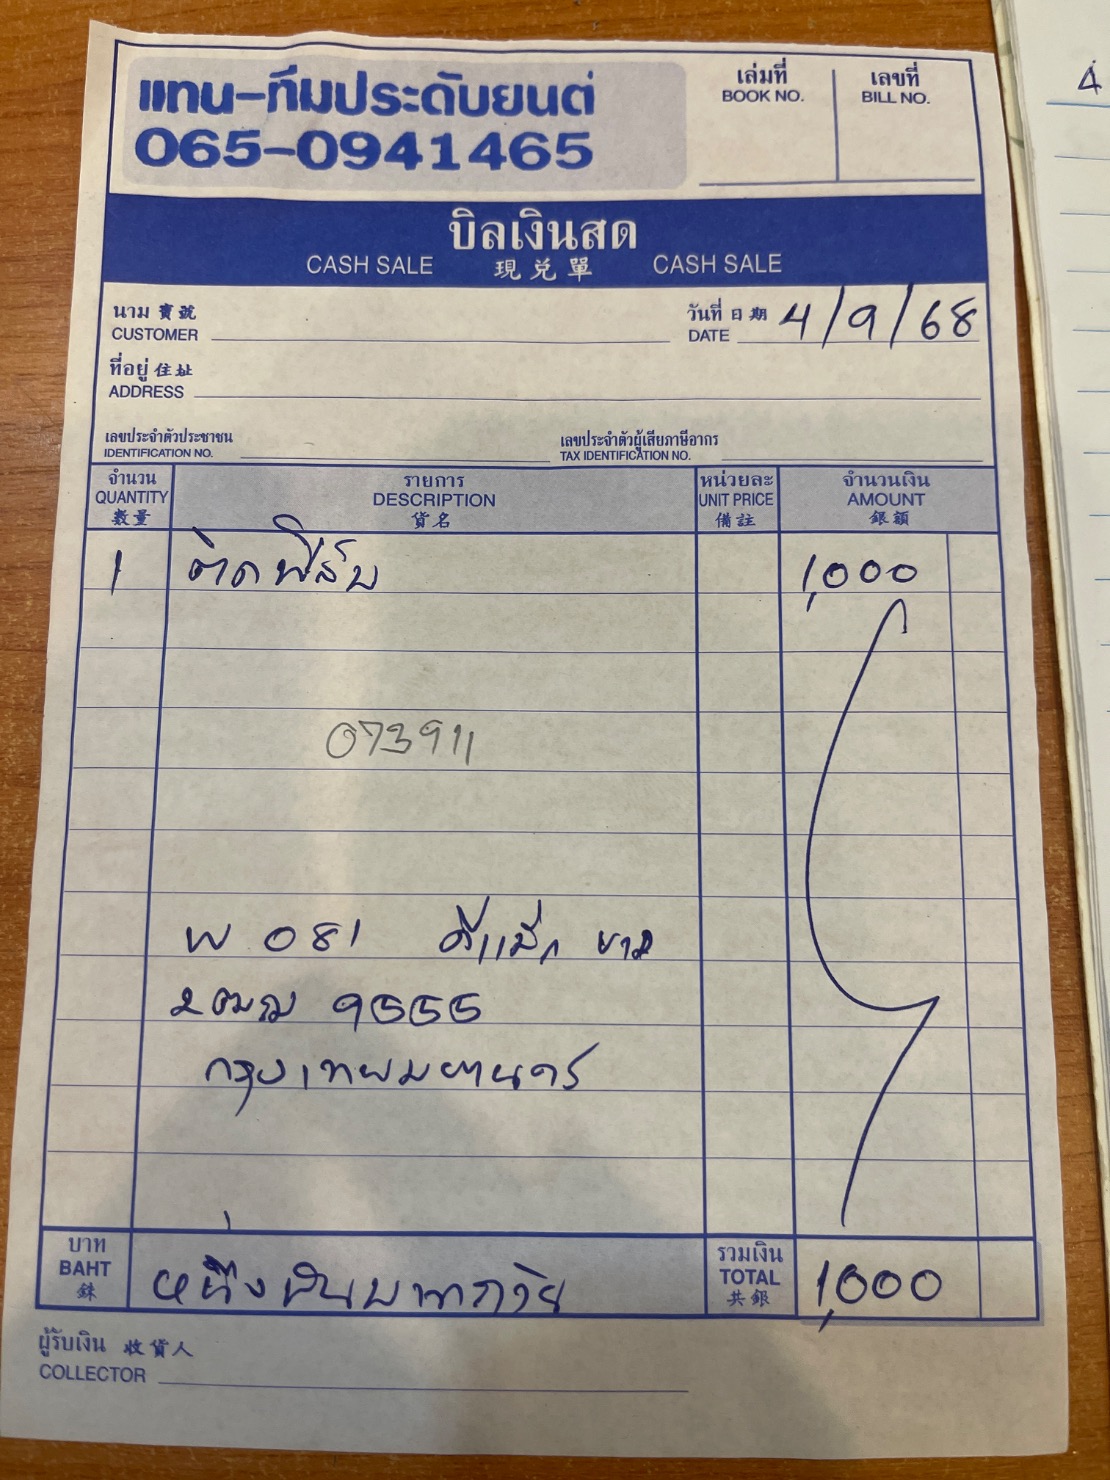 แทน-ทีมประดับยนต์
065-0941465
เล่มที่
BOOK NO.
เลขที่
BILL NO.
บิลเงินสด
CASH SALE 現兌單 CASH SALE
นาม 寶號
CUSTOMER
วันที่ 日期
DATE 4/9/68
ที่อยู่ 住址
ADDRESS
เลขประจำตัวประชาชน
IDENTIFICATION NO.
เลขประจำตัวผู้เสียภาษีอากร
TAX IDENTIFICATION NO.
จำนวน
QUANTITY
數量
รายการ
DESCRIPTION
貨名
หน่วยละ
UNIT PRICE
備註
จำนวนเงิน
AMOUNT
銀額
1 ติดฟิล์ม 1,000
073911
W 081 ดีแม็ก
9555
กรุงเทพมหานคร
บาท
BAHT
銖
หนึ่งพันบาทถ้วน
รวมเงิน
TOTAL
共銀
1,000
ผู้รับเงิน 收貨人
COLLECTOR
4